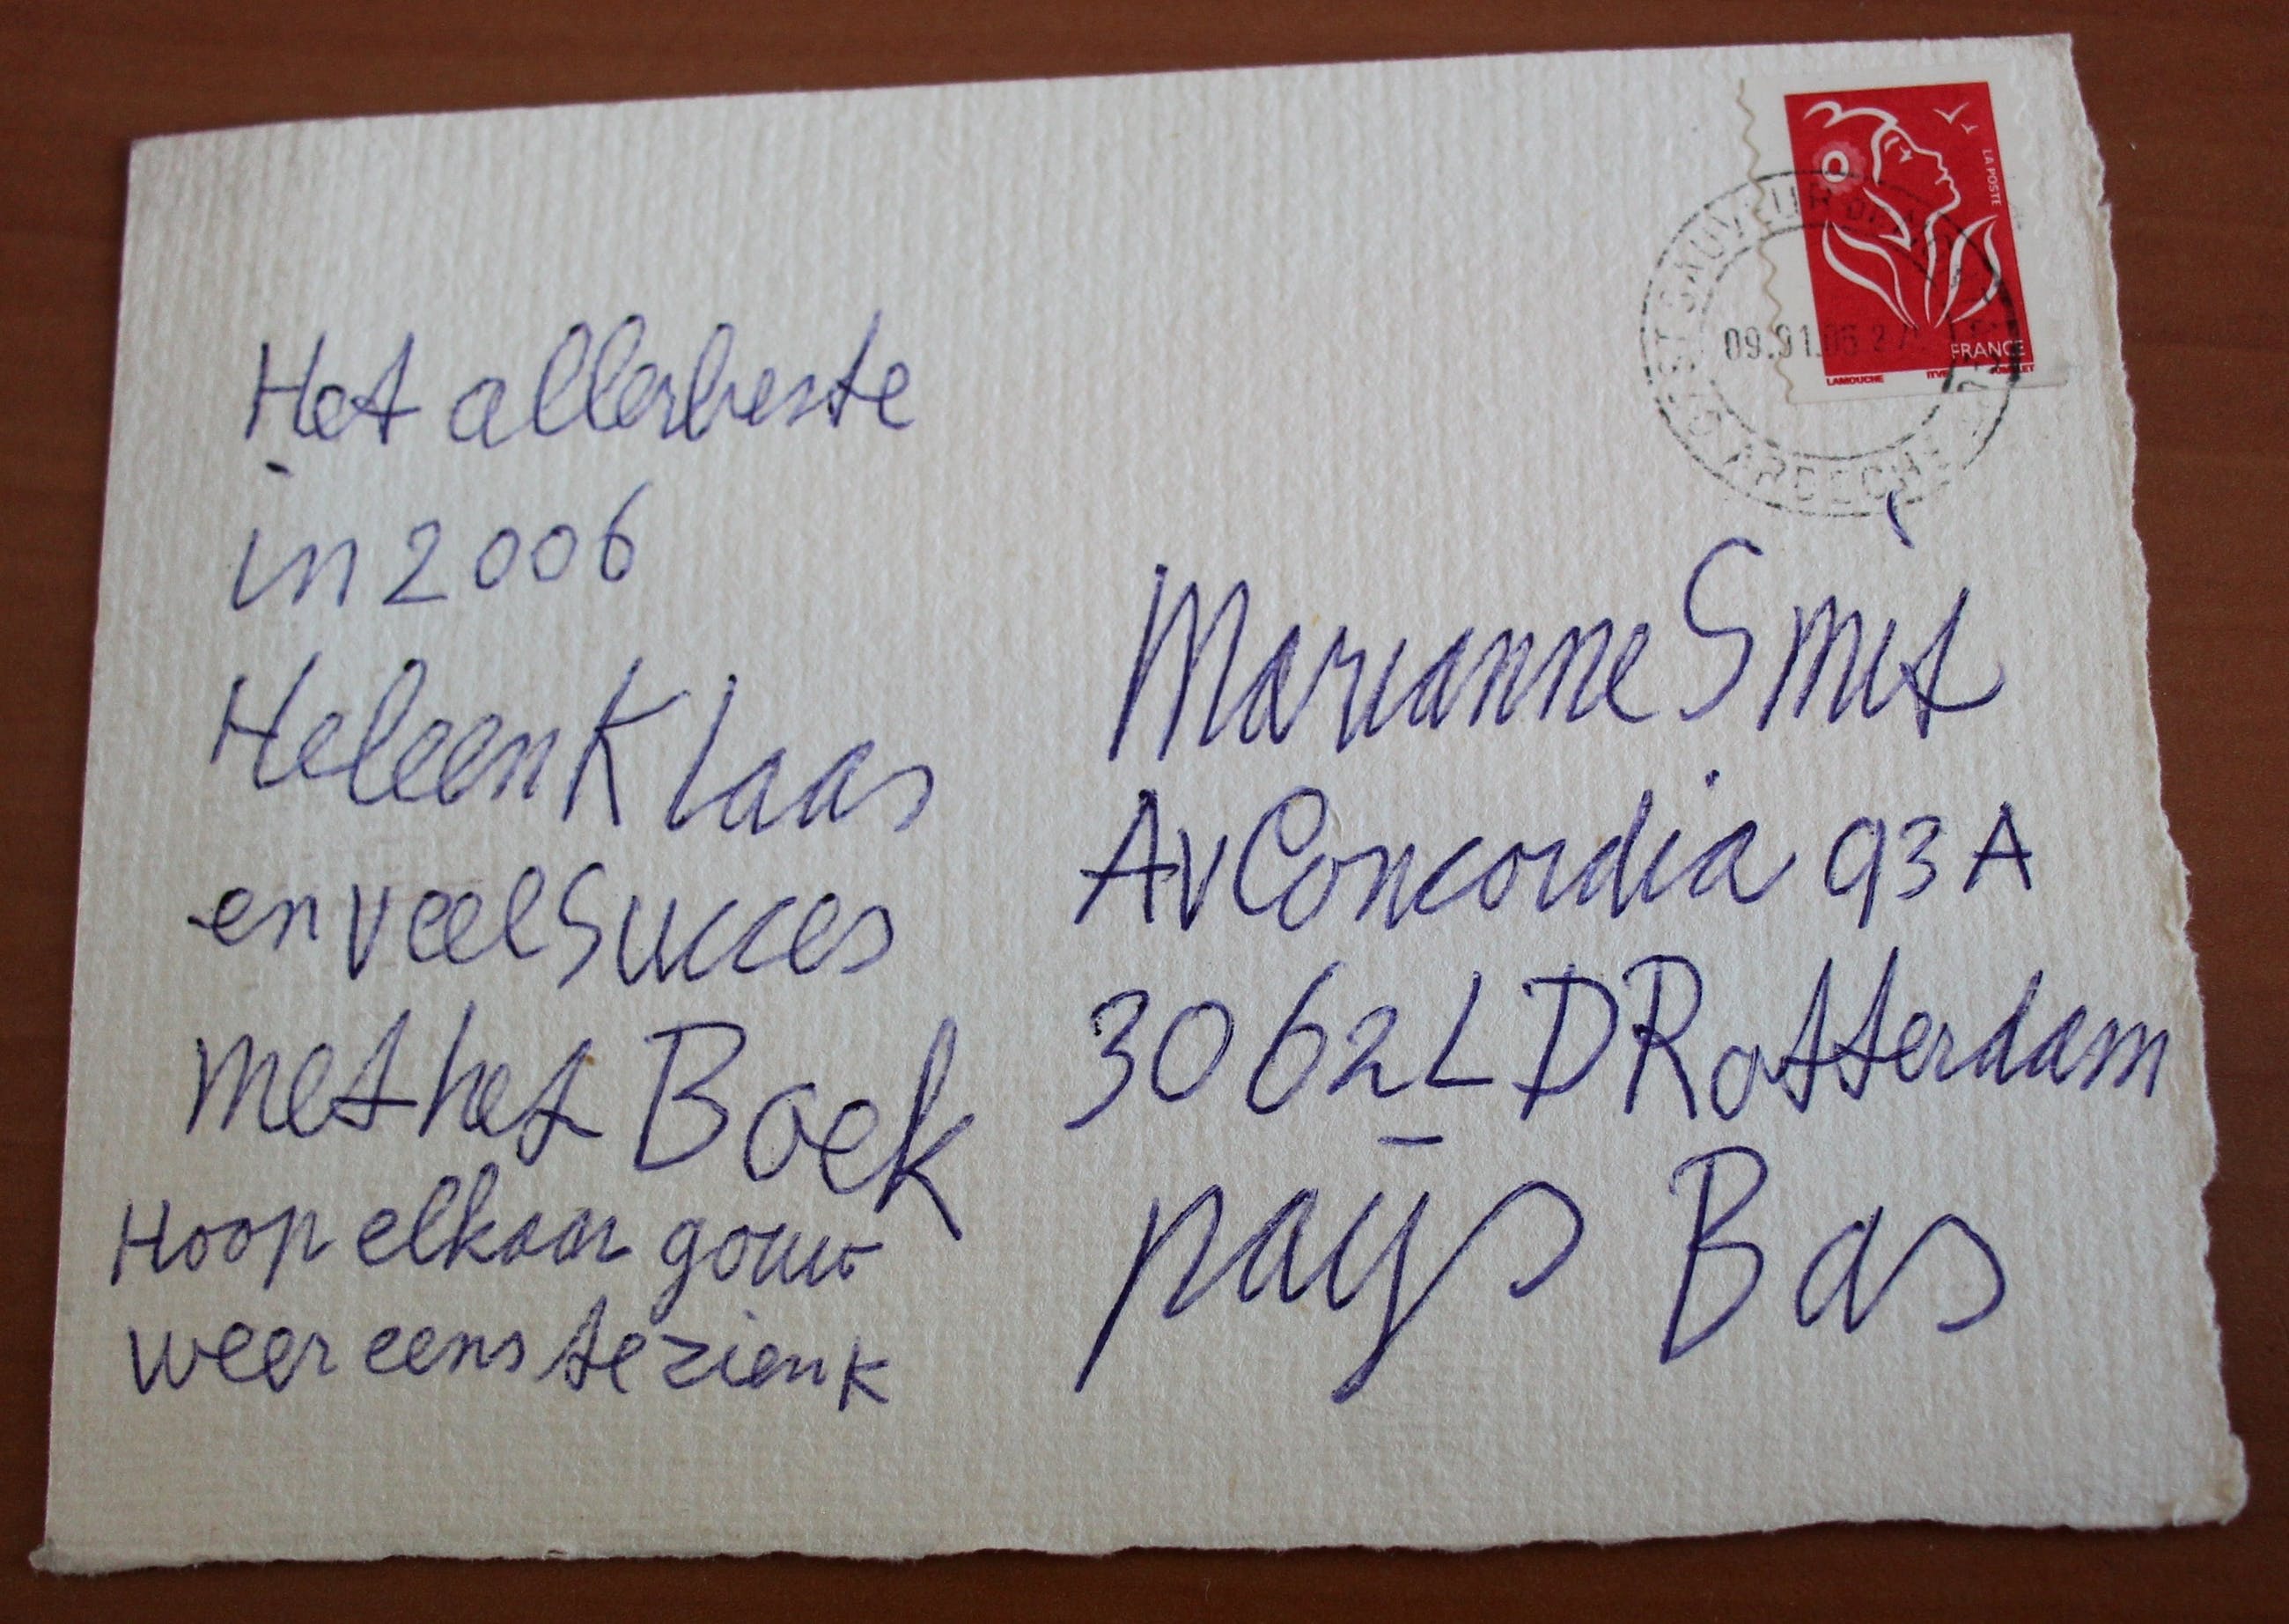 Het allerbeste
in 2006
Heleen Klaas
en veel Succes
met het Boek
Hoop elkaar gouw
weer eens te zien K
LA POSTE
FRANCE
LAMOUCHE
ST SAUVEUR DE
ARDECHE
Marianne Smit
Av Concordia 93 A
3062 LD Rotterdam
pays Bas